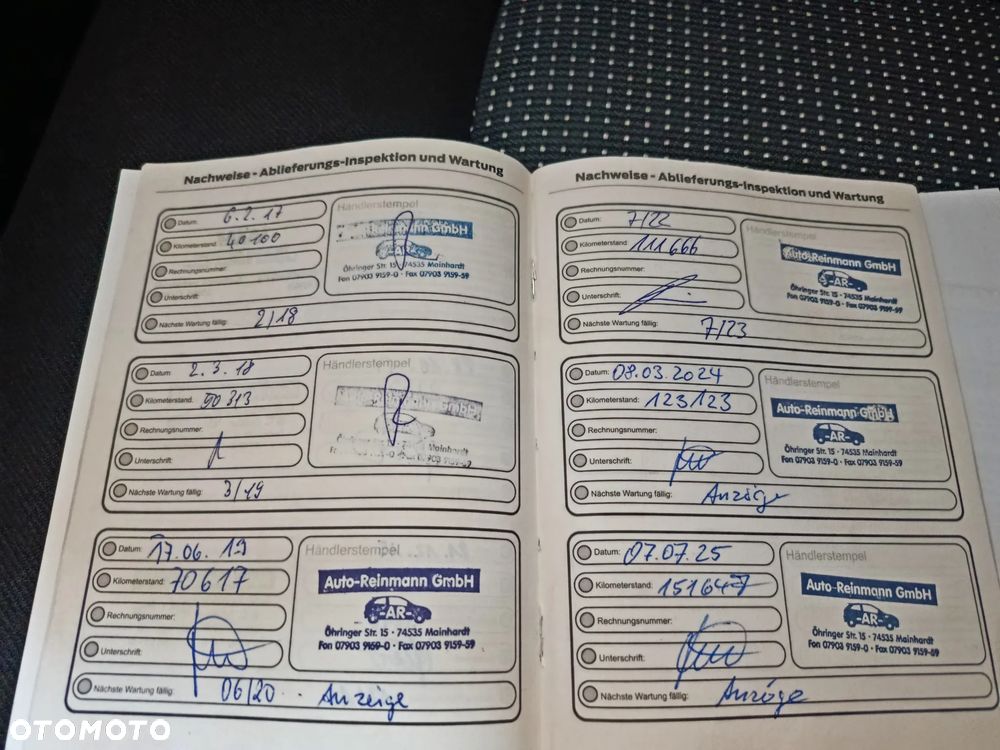 Nachweise - Ablieferungs-Inspektion und Wartung
Datum: 6.2.17
Kilometerstand: 40100
Rechnungsnummer:
Unterschrift:
Nächste Wartung fällig: 2/18
Händlerstempel
Auto-Reinmann GmbH
-AR-
Öhringer Str. 15 · 74535 Mainhardt
Fon 07903 9159-0 · Fax 07903 9159-59
Datum: 2.3.18
Kilometerstand: 50313
Rechnungsnummer:
Unterschrift:
Nächste Wartung fällig: 3/19
Händlerstempel
GmbH
Mainhardt
07903 9159-59
Datum: 17.06.19
Kilometerstand: 70617
Rechnungsnummer:
Unterschrift:
Nächste Wartung fällig: 06/20 .. Anzeige
Händlerstempel
Auto-Reinmann GmbH
-AR-
Öhringer Str. 15 · 74535 Mainhardt
Fon 07903 9159-0 · Fax 07903 9159-59
Nachweise - Ablieferungs-Inspektion und Wartung
Datum: 7/22
Kilometerstand: 111666
Rechnungsnummer:
Unterschrift:
Nächste Wartung fällig: 7/23
Händlerstempel
Auto-Reinmann GmbH
-AR-
Öhringer Str. 15 · 74535 Mainhardt
Fon 07903 9159-0 · Fax 07903 9159-59
Datum: 08.03.2024
Kilometerstand: 123123
Rechnungsnummer:
Unterschrift:
Nächste Wartung fällig: Anzeige
Händlerstempel
Auto-Reinmann GmbH
-AR-
Öhringer Str. 15 · 74535 Mainhardt
Fon 07903 9159-0 · Fax 07903 9159-59
Datum: 07.07.25
Kilometerstand: 151647
Rechnungsnummer:
Unterschrift:
Nächste Wartung fällig: Anzeige
Händlerstempel
Auto-Reinmann GmbH
-AR-
Öhringer Str. 15 · 74535 Mainhardt
Fon 07903 9159-0 · Fax 07903 9159-59
OTOMOTO